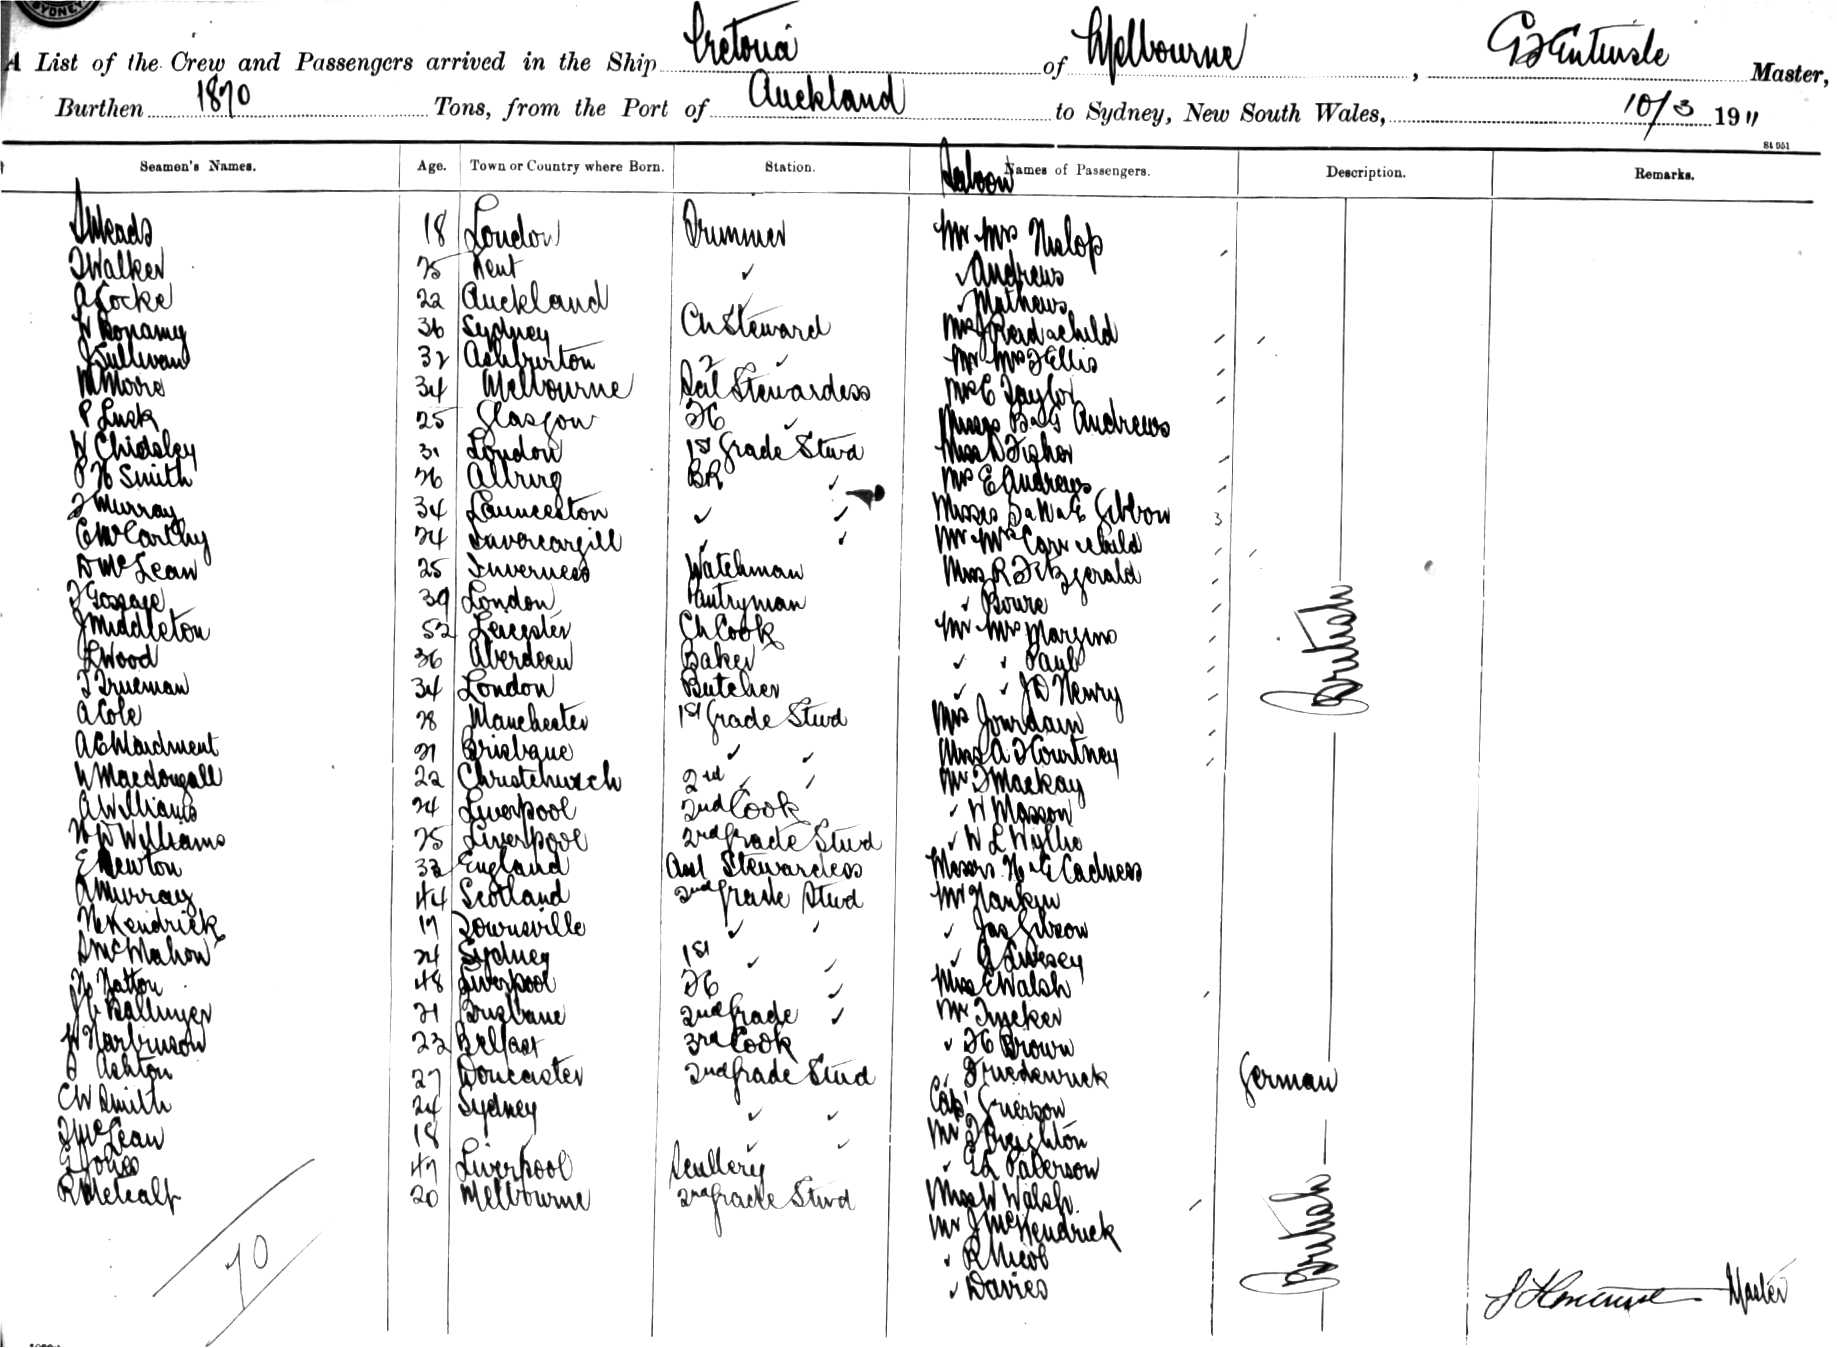 SYDNEY
A List of the Crew and Passengers arrived in the Ship of Melbourne, Master,
Burthen 1870 Tons, from the Port of Auckland to Sydney, New South Wales, 10/3 1911
84 051
Seamen's Names. Age. Town or Country where Born. Station. Saloon Names of Passengers. Description. Remarks.
18 London Mr Mrs Hislop
Walker 25 Kent ✓ ✓ Andrews
A Cocke 22 Auckland ✓ Mathews
W Bonamy 36 Sydney Ch Steward Mrs J Reid & child
J Sullivan 32 Ashburton 2 ✓ Mr Mrs Ellis
M Moore 34 Melbourne Stewardess Mrs E Taylor
P Luck 25 Glasgow ✓ Misses B & G Andrews
W Chidsley 31 London 1st Grade Stwd Miss Fisher
P H Smith 26 BR ✓ Mrs E Andrews
Murray 34 Launceston ✓ ✓ Misses Gibbon 3
E McCarthy 24 Invercargill ✓ ✓ Mr Mrs Carr & child
D McLean 25 Inverness Watchman Miss R Fitzgerald
39 London Pantryman ✓
J Middleton 52 Leicester Ch Cook Mr Mrs
Wood 36 Aberdeen Baker ✓ ✓ Paul
Trueman 34 London Butcher ✓ ✓ J D Henry
A Cole 28 Manchester 1st Grade Stwd Mrs Jourdain
British
A E Maidment 21 Brisbane ✓ ✓ Miss A Courtney
W Macdougall 22 Christchurch 2nd ✓ ✓ Mr Mackay
A Williams 24 Liverpool 2nd Cook ✓ W Masson
H W Williams 25 Liverpool 2nd Grade Stwd ✓ W L Wyllie
E Newton 32 England Asst Stewardess Messrs H & E Cadness
A Murray 44 Scotland 2nd Grade Stwd Mr Rankin
McKendrick 17 Townsville ✓ ✓ ✓ Jas Gibson
D McMahon 24 Sydney 1st ✓ ✓ ✓ G Livesey
H Hatton 48 Liverpool ✓ Miss E Walsh
J C Ballinger 21 Brisbane 2nd Grade ✓ Mr Tucker
W Harbinson 22 Belfast 3rd Cook ✓ Brown
Ashton 27 Doncaster 2nd Grade Stwd German
C W Smith 24 Sydney ✓ ✓ Capt Grierson
McLean 18 ✓ ✓ Mr Creighton
G Jones 47 Liverpool Scullery ✓ Paterson
R Metcalf 20 Melbourne 2nd Grade Stwd Miss W Walsh
Mr J McKendrick
70 ✓ R Nicol British
✓ Davies
Master